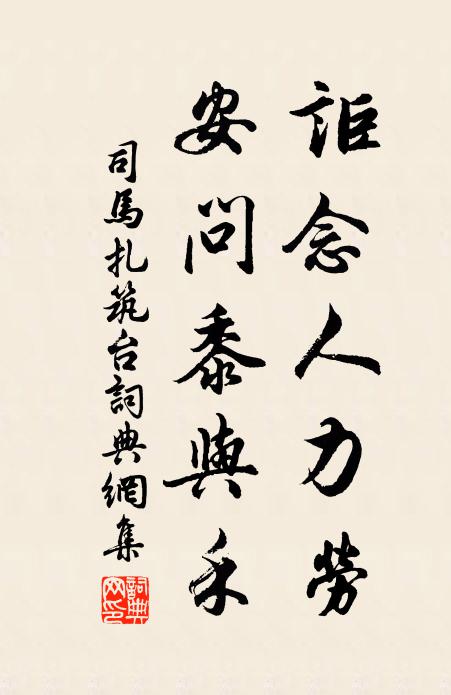 詎念人力勞
安問黍與禾
司馬扎筑台詞典網集
詞典
网印